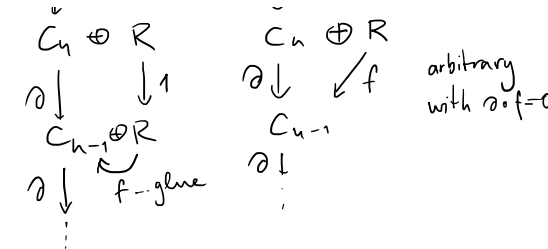 Cₙ ⊕ R
∂ ↓ ↓ 1
Cₙ₋₁ ⊕ R
∂ ↓ f - glue
⋮
Cₙ ⊕ R
∂ ↓ ↙ f
Cₙ₋₁
∂ ↓
⋮
arbitrary
with ∂∘f=0